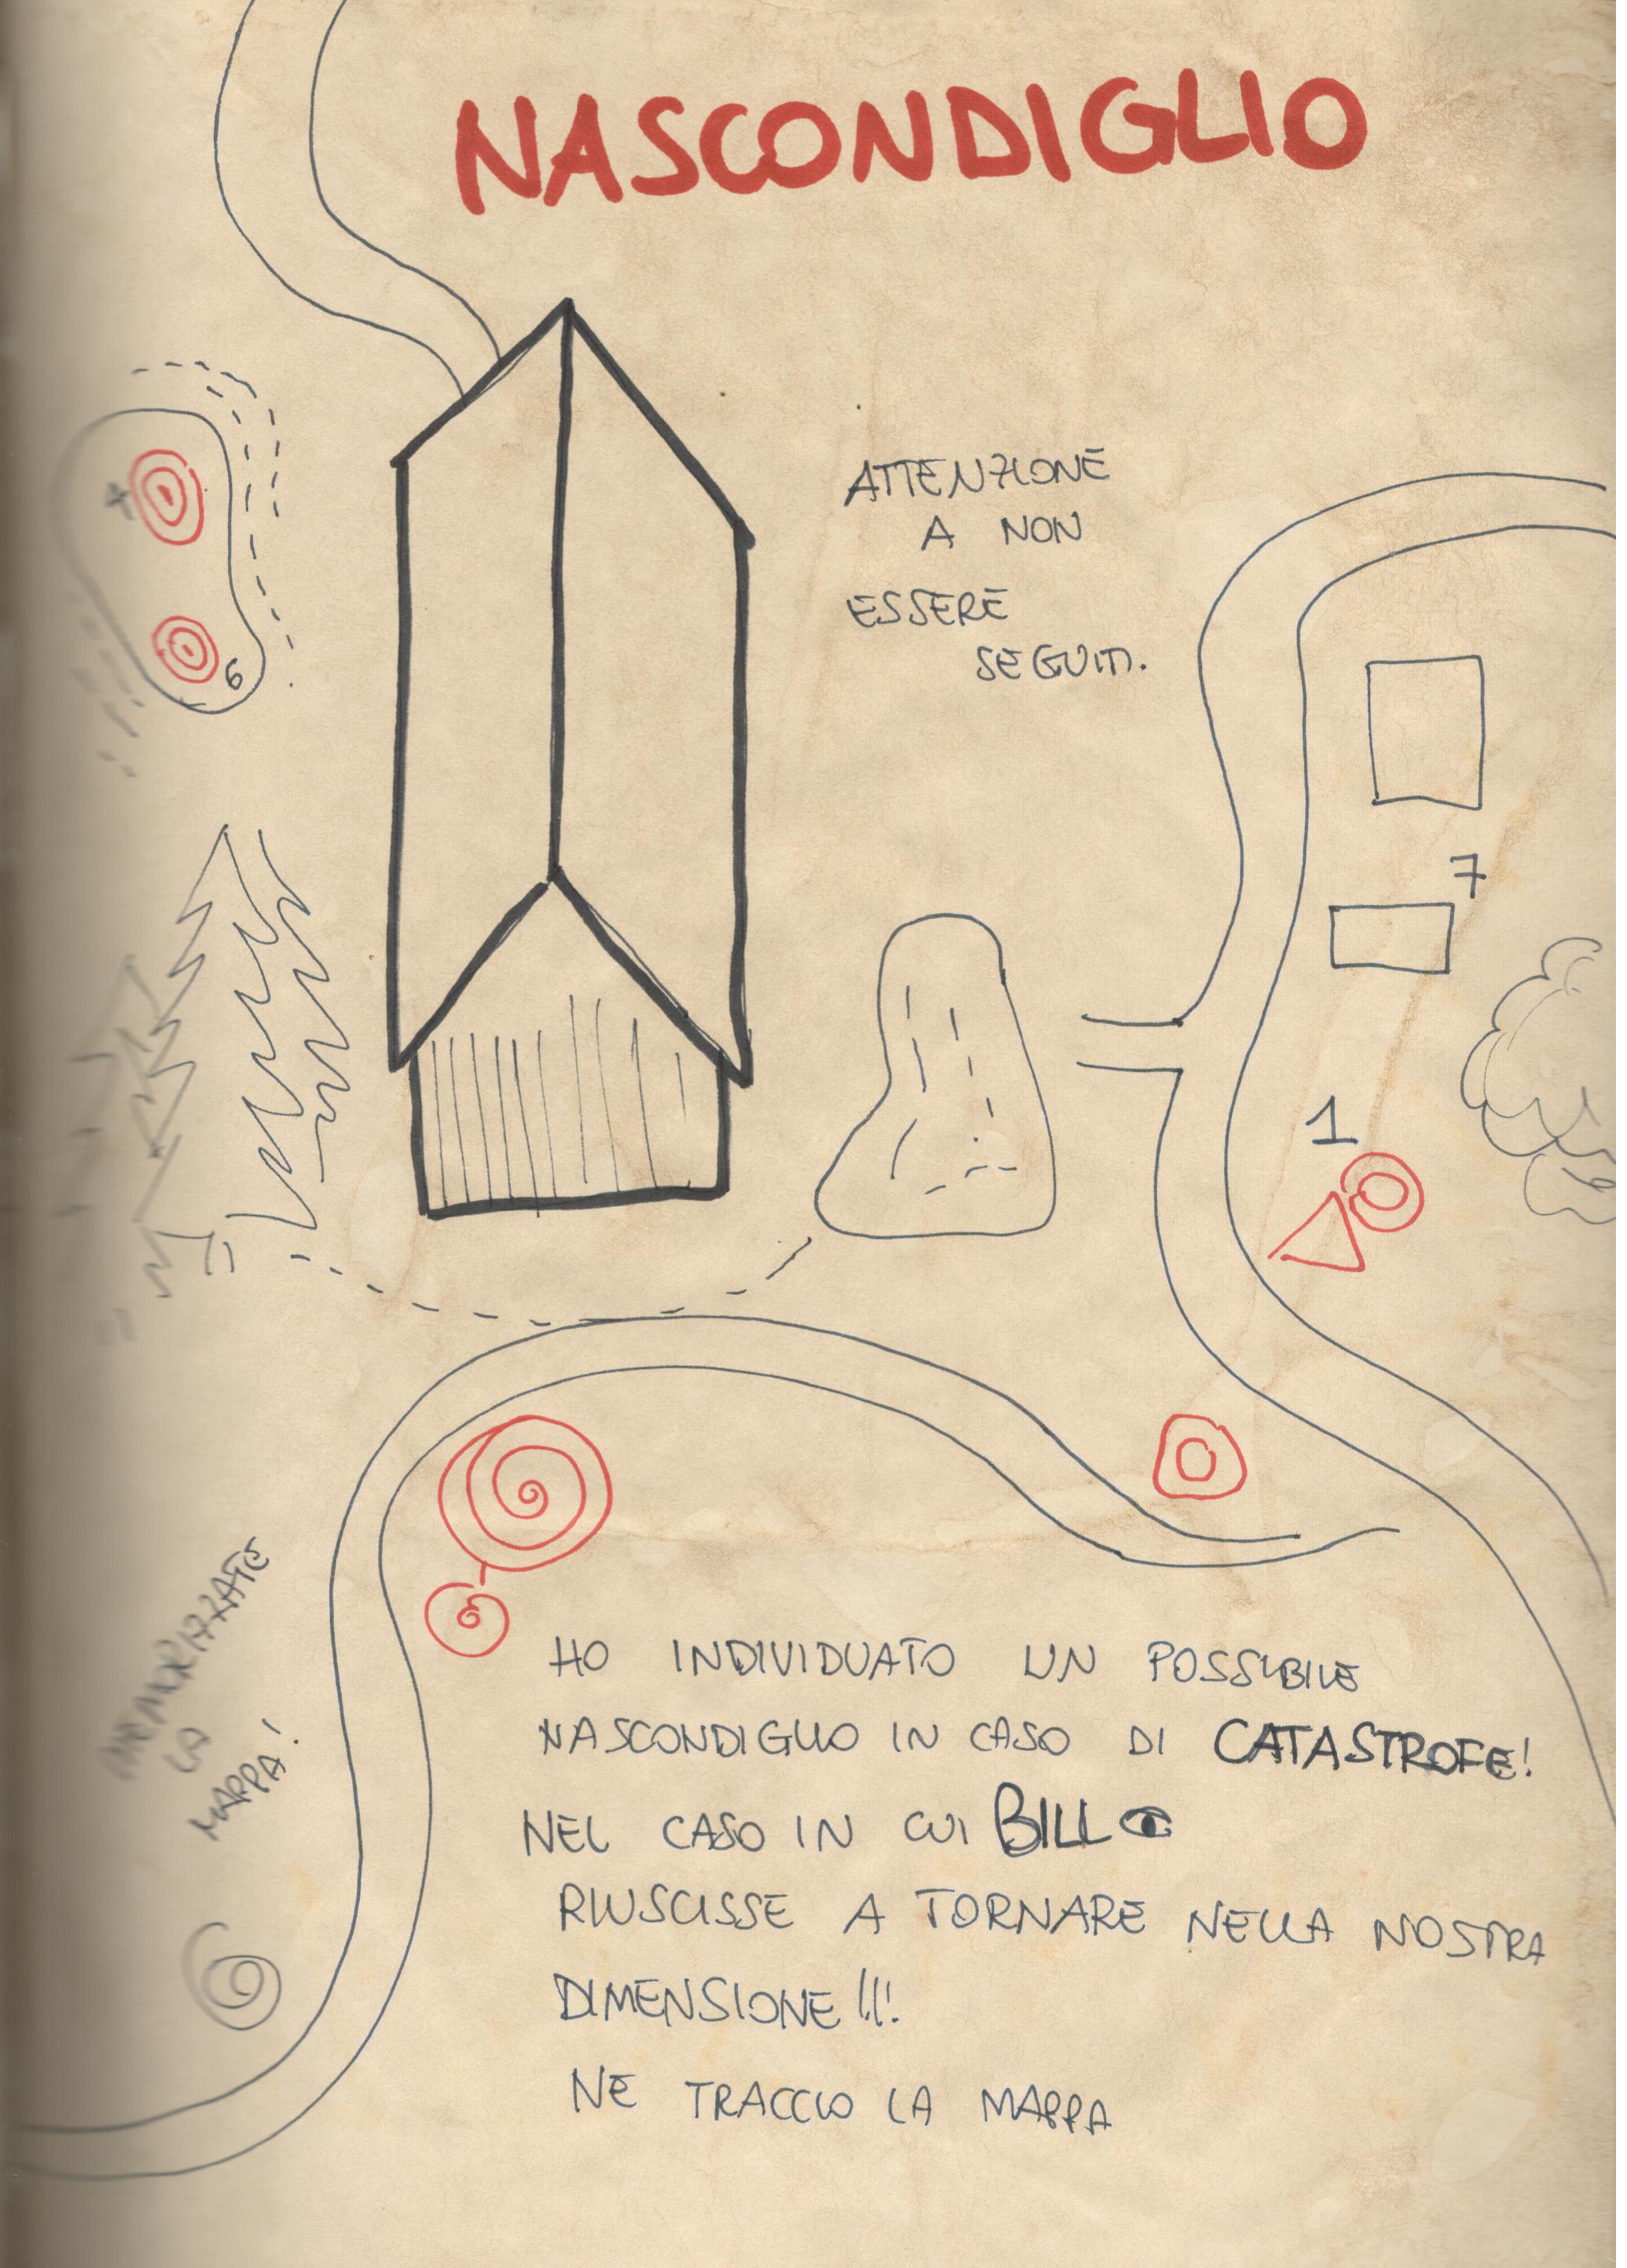 NASCONDIGLIO
ATTENZIONE
A NON
ESSERE
SEGUITI.
6
7
1
MEMORIZZATE
LA
MAPPA!
HO INDIVIDUATO UN POSSIBILE
NASCONDIGLIO IN CASO DI CATASTROFE!
NEL CASO IN CUI BILL
RIUSCISSE A TORNARE NELLA NOSTRA
DIMENSIONE!!!
NE TRACCIO LA MAPPA